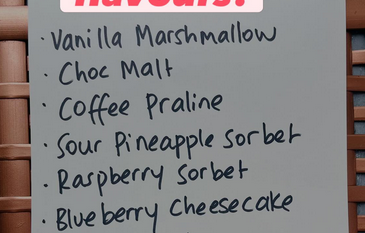 flavours!
· Vanilla Marshmallow
· Choc Malt
· Coffee Praline
· Sour Pineapple Sorbet
· Raspberry Sorbet
· Blueberry Cheesecake